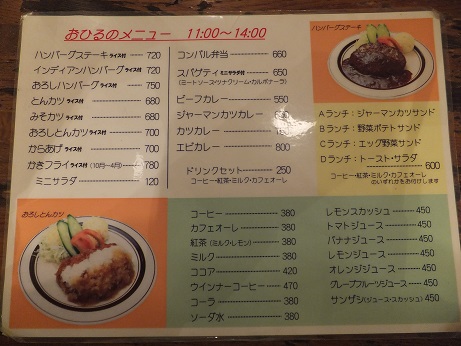 おひるのメニュー 11:00～14:00
ハンバーグステーキ ライス付 ---- 720
インディアンハンバーグ ライス付 - 720
おろしハンバーグ ライス付 ---- 750
とんカツ ライス付 ---- 680
みそカツ ライス付 ---- 680
おろしとんカツ ライス付 ---- 700
からあげ ライス付 ---- 700
かきフライ ライス付 (10月～4月) ---- 780
ミニサラダ ---- 120
コンパル弁当 ---- 660
スパゲティ ミニサラダ付 ---- 650
(ミートソース・ツナクリーム・カルボナーラ)
ビーフカレー ---- 550
ジャーマンカツカレー ---- 
カツカレー ---- 
エビカレー ---- 800
ドリンクセット ---- 250
コーヒー・紅茶・ミルク・カフェオーレ
ハンバーグステーキ
Aランチ：ジャーマンカツサンド
Bランチ：野菜ポテトサンド
Cランチ：エッグ野菜サンド
Dランチ：トースト・サラダ
---- 600
コーヒー・紅茶・ミルク・カフェオーレ
のいずれかをお付けします
おろしとんカツ
コーヒー ---- 380
カフェオーレ ---- 380
紅茶 (ミルク・レモン) ---- 380
ミルク ---- 380
ココア ---- 420
ウインナーコーヒー ---- 470
コーラ ---- 380
ソーダ水 ---- 380
レモンスカッシュ ---- 450
トマトジュース ---- 450
バナナジュース ---- 450
レモンジュース ---- 450
オレンジジュース ---- 450
グレープフルーツジュース ---- 450
サンザシ (ジュース・スカッシュ) ---- 450